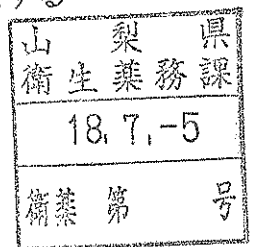 する
山梨県
衛生薬務課
18.7.-5
衛薬第 号